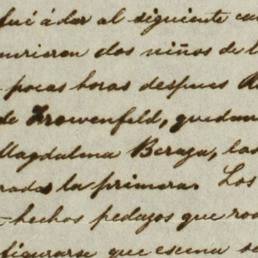 fué á dar al siguiente
murieron dos niños de l
pocas horas despues
de Trowenfeld, quedan
Magdalena Beraza, las
radas la primera. Los
hechos pedazos que ro
figurarse que escena se